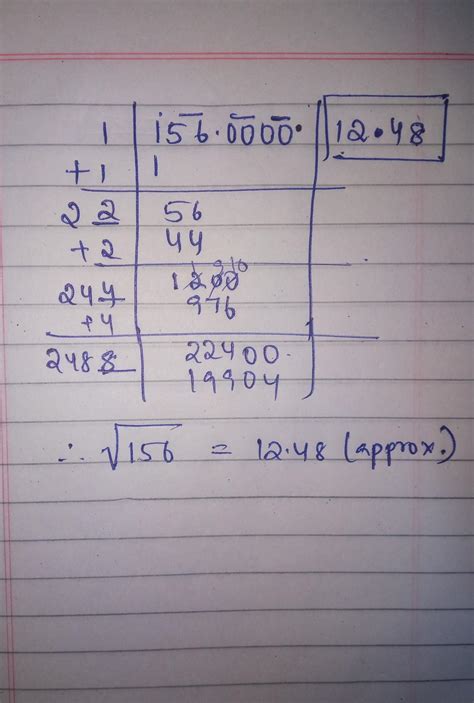 1 | 156.0000. | 12.48
+1 | 1
22 | 56
+2 | 44
244 | 1200
+4 | 976
2488 | 22400.
19904
∴ √156 = 12.48 (approx.)